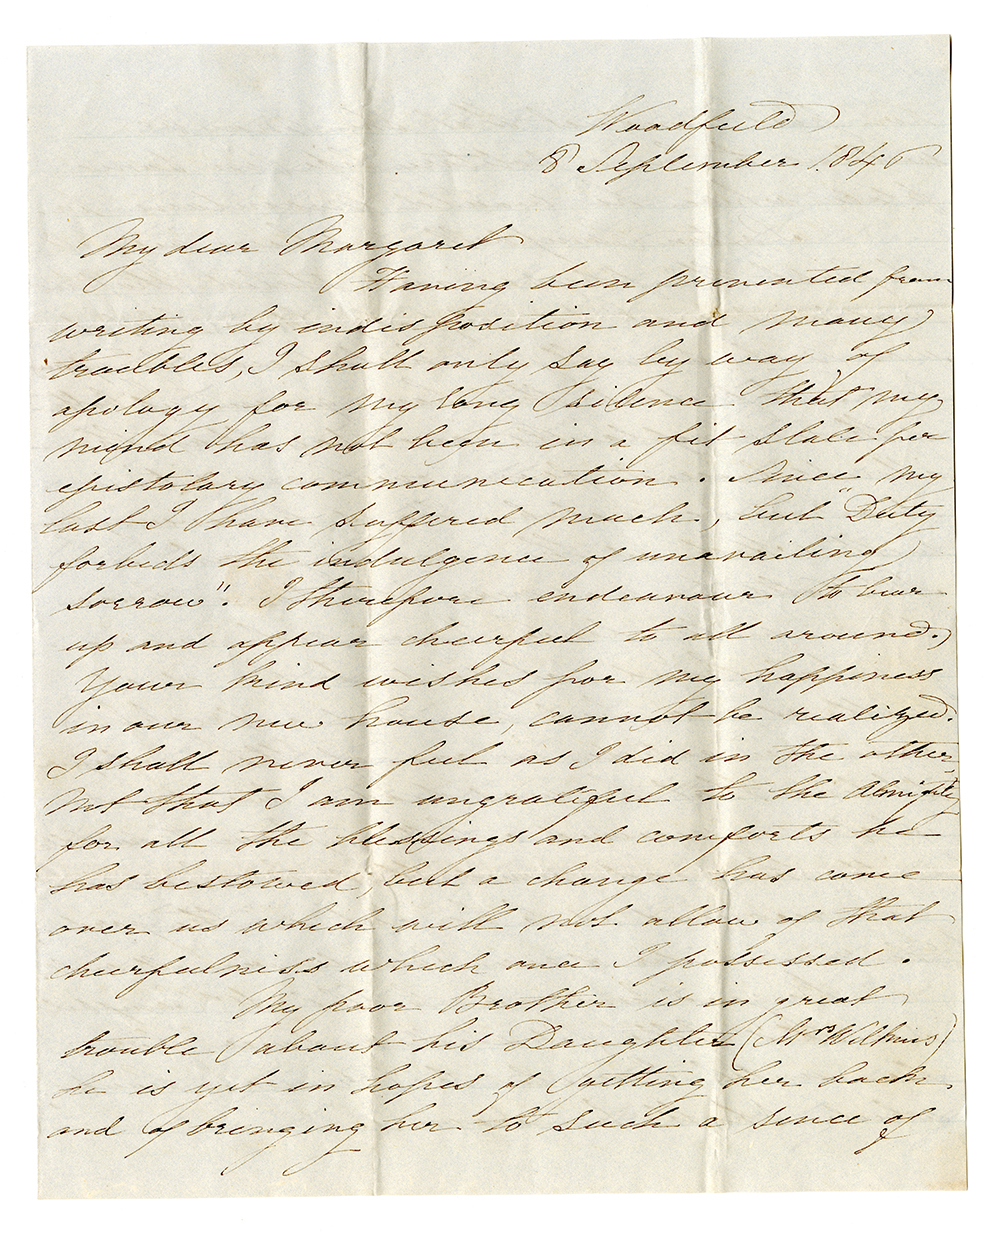 Woodfield
8 September 1846
My dear Margaret
Having been prevented from
writing by indisposition and many
troubles, I shall only say by way of
apology for my long silence that my
mind has not been in a fit state for
epistolary communication. Since my
last I have suffered much, but "Duty
forbids the indulgence of unavailing
sorrow". I therefore endeavour to bear
up and appear cheerful to all around.
Your kind wishes for my happiness
in our new house, cannot be realized.
I shall never feel as I did in the other
not that I am ungrateful to the Almighty
for all the blessings and comforts he
has bestowed but a change has come
over us which will not allow of that
cheerfulness which once I possessed.
My poor Brother is in great
trouble about his Daughter (Mrs Wilkins)
he is yet in hopes of getting her back
and of bringing her to such a sence of